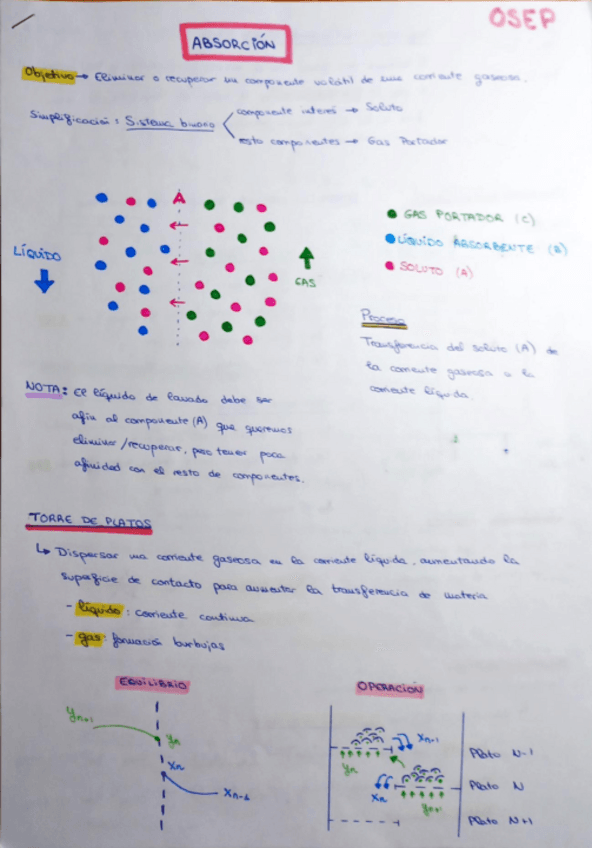 OSEP
ABSORCIÓN
Objetivo → Eliminar o recuperar un componente volátil de una corriente gaseosa.
Simplificación: Sistema binario
componente interés → Soluto
resto componentes → Gas Portador
A
LÍQUIDO
GAS
GAS PORTADOR (C)
LÍQUIDO ABSORBENTE (B)
SOLUTO (A)
Proceso
Transferencia del soluto (A) de
la corriente gaseosa a la
corriente líquida.
NOTA: El líquido de lavado debe ser
afín al componente (A) que queremos
eliminar/recuperar, pero tener poca
afinidad con el resto de componentes.
TORRE DE PLATOS
↳ Dispersar una corriente gaseosa en la corriente líquida, aumentando la
superficie de contacto para aumentar la transferencia de materia
- líquido: corriente continua
- gas: formación burbujas
EQUILIBRIO
yn+1
yn
xn
xn-1
OPERACIÓN
xn-1
yn
xn
yn+1
Plato N-1
Plato N
Plato N+1